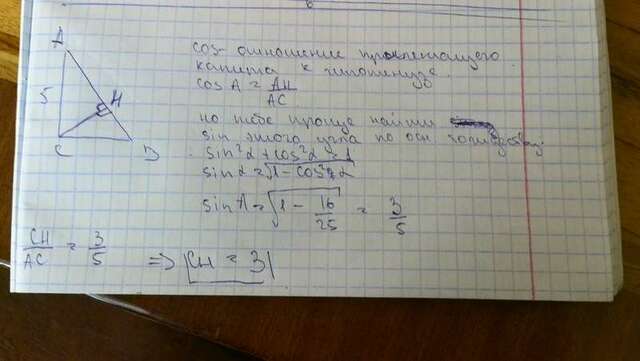 A
5
H
C
B
cos - отношение прилежащего
катета к гипотенузе.
cos A = AH/AC
но тебе проще найти
sin этого угла по осн. тождеству.
sin²α + cos²α = 1
sin α = √1 - cos²α
sin A = √1 - 16/25 = 3/5
CH/AC = 3/5 => CH = 3